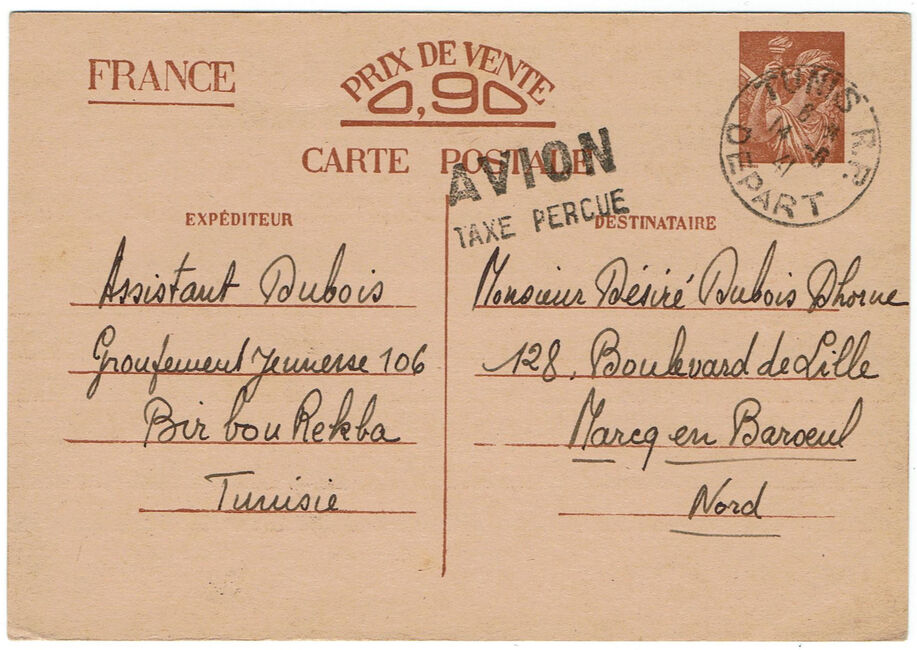 FRANCE
PRIX DE VENTE
0,90
CARTE POSTALE
AVION
TAXE PERCUE
TUNIS R.P.
14 -6
41
DEPART
EXPÉDITEUR
Assistant Dubois
Groupement Jeunesse 106
Bir bou Rekba
Tunisie
DESTINATAIRE
Monsieur Désiré Dubois Dhorne
128, Boulevard de Lille
Marcq en Baroeul
Nord